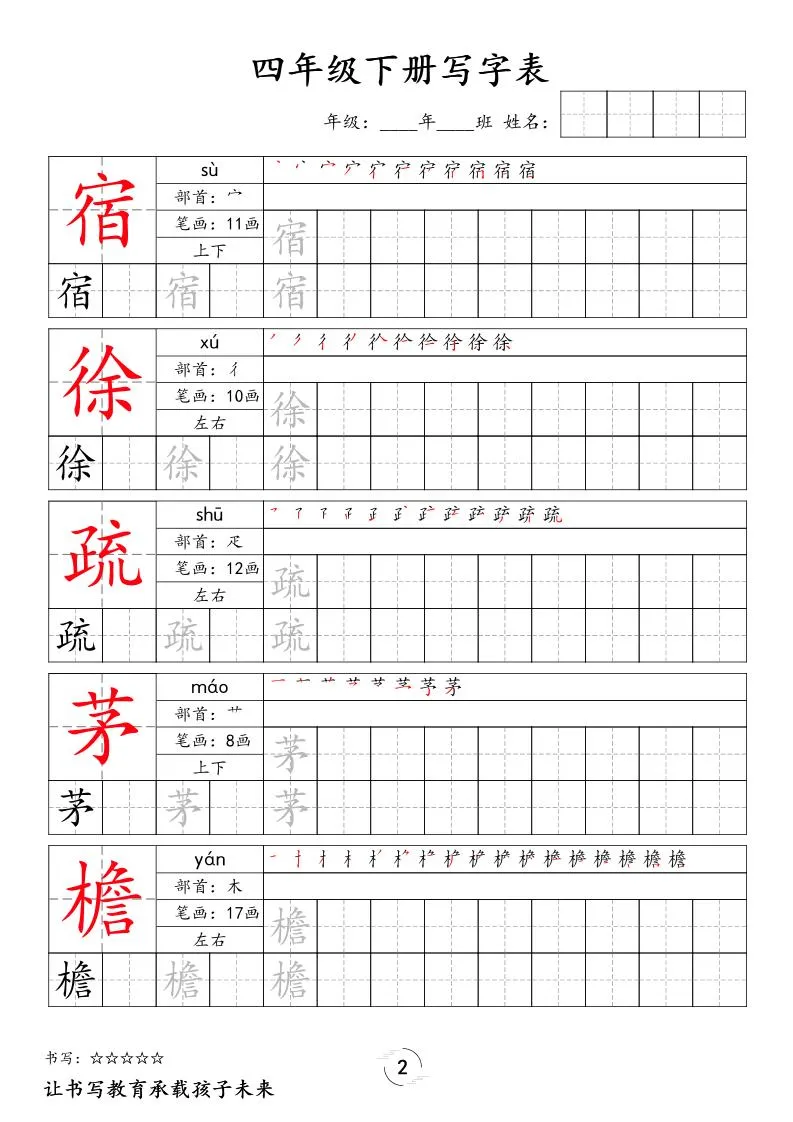 四年级下册写字表
年级：____年____班 姓名：
宿
sù
部首：宀
笔画：11画
上下
宿
宿 宿 宿
徐
xú
部首：彳
笔画：10画
左右
徐
徐 徐 徐
疏
shū
部首：疋
笔画：12画
左右
疏
疏 疏 疏
茅
máo
部首：艹
笔画：8画
上下
茅
茅 茅 茅
檐
yán
部首：木
笔画：17画
左右
檐
檐 檐 檐
书写：☆☆☆☆☆
2
让书写教育承载孩子未来